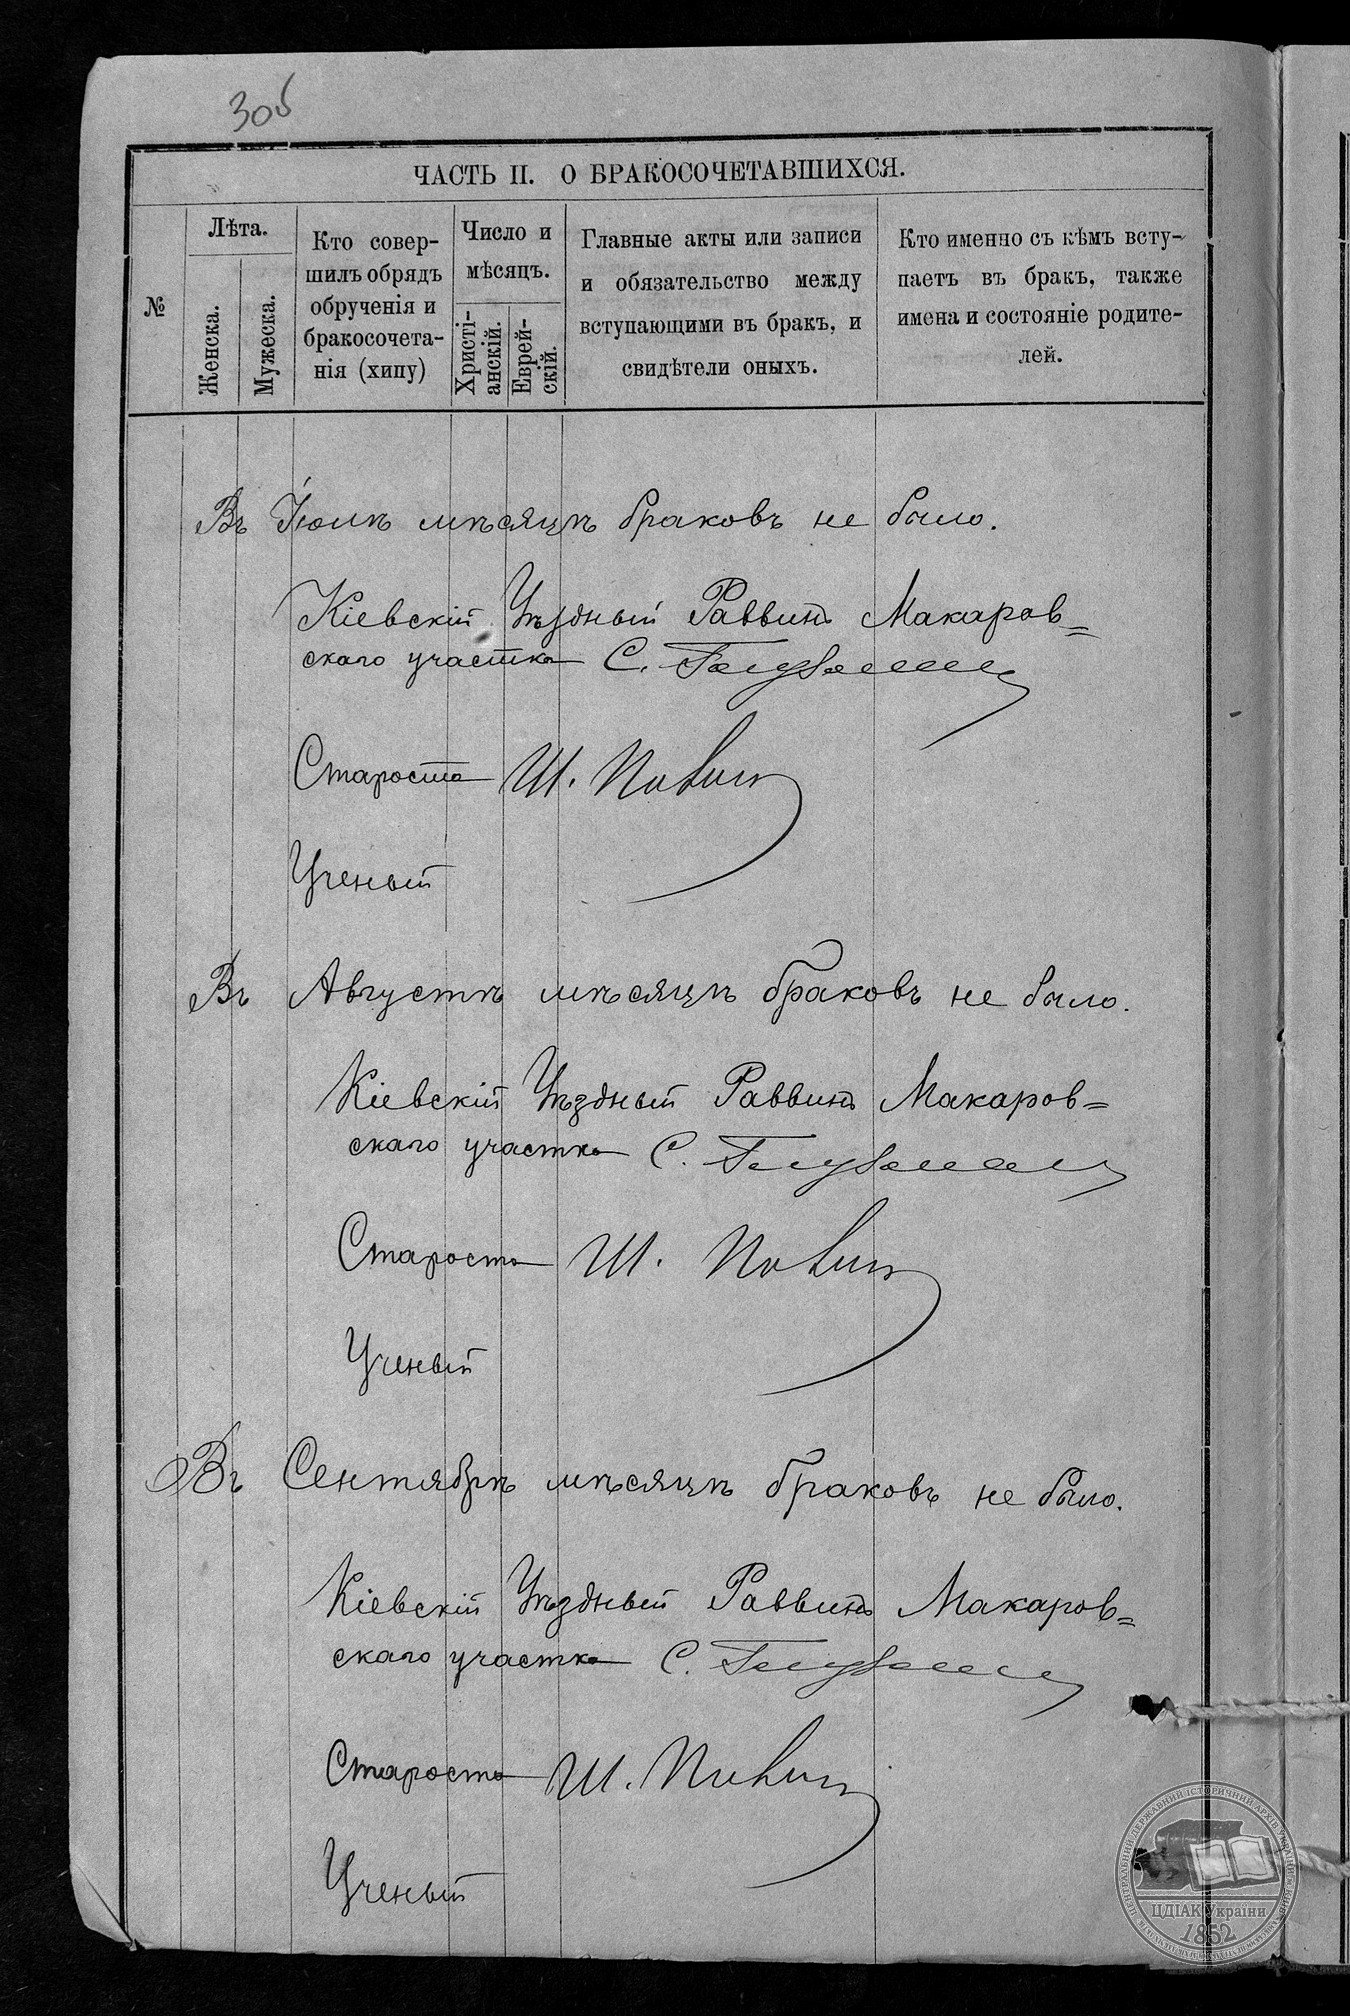 30б
ЧАСТЬ II. О БРАКОСОЧЕТАВШИХСЯ.
№
Лѣта.
Женска.
Мужеска.
Кто совер-
шилъ обрядъ
обрученія и
бракосочета-
нія (хипу)
Число и
мѣсяцъ.
Христі-
анскій.
Еврей-
скій.
Главные акты или записи
и обязательство между
вступающими въ бракъ, и
свидѣтели оныхъ.
Кто именно съ кѣмъ всту-
паетъ въ бракъ, также
имена и состояніе родите-
лей.
Въ Іюлѣ мѣсяцѣ браковъ не было.
Кіевскій Уѣздный Раввинъ Макаров=
скаго участка С.
Староста Ш.
Ученый
Въ Августѣ мѣсяцѣ браковъ не было.
Кіевскій Уѣздный Раввинъ Макаров=
скаго участка С.
Староста Ш.
Ученый
Въ Сентябрѣ мѣсяцѣ браковъ не было.
Кіевскій Уѣздный Раввинъ Макаров=
скаго участка С.
Староста Ш.
Ученый
ЦДІАК України
1852